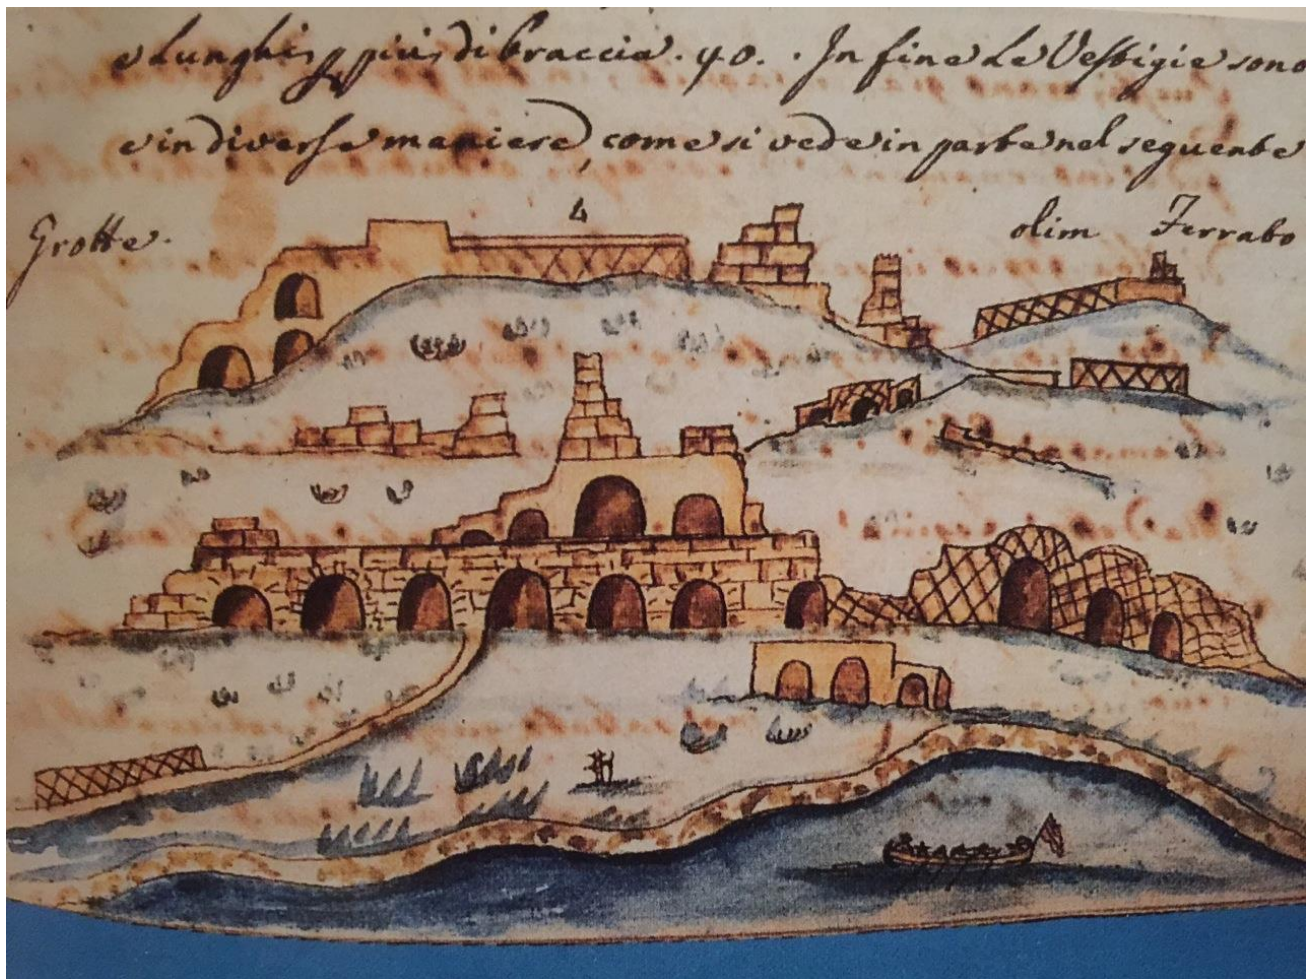 e lunghi, p più, di braccia. 40. . In fine le Vestigie sono
e in diverse maniere, come si vede in parte nel seguente
Grotte.
4
olim Ferrabo